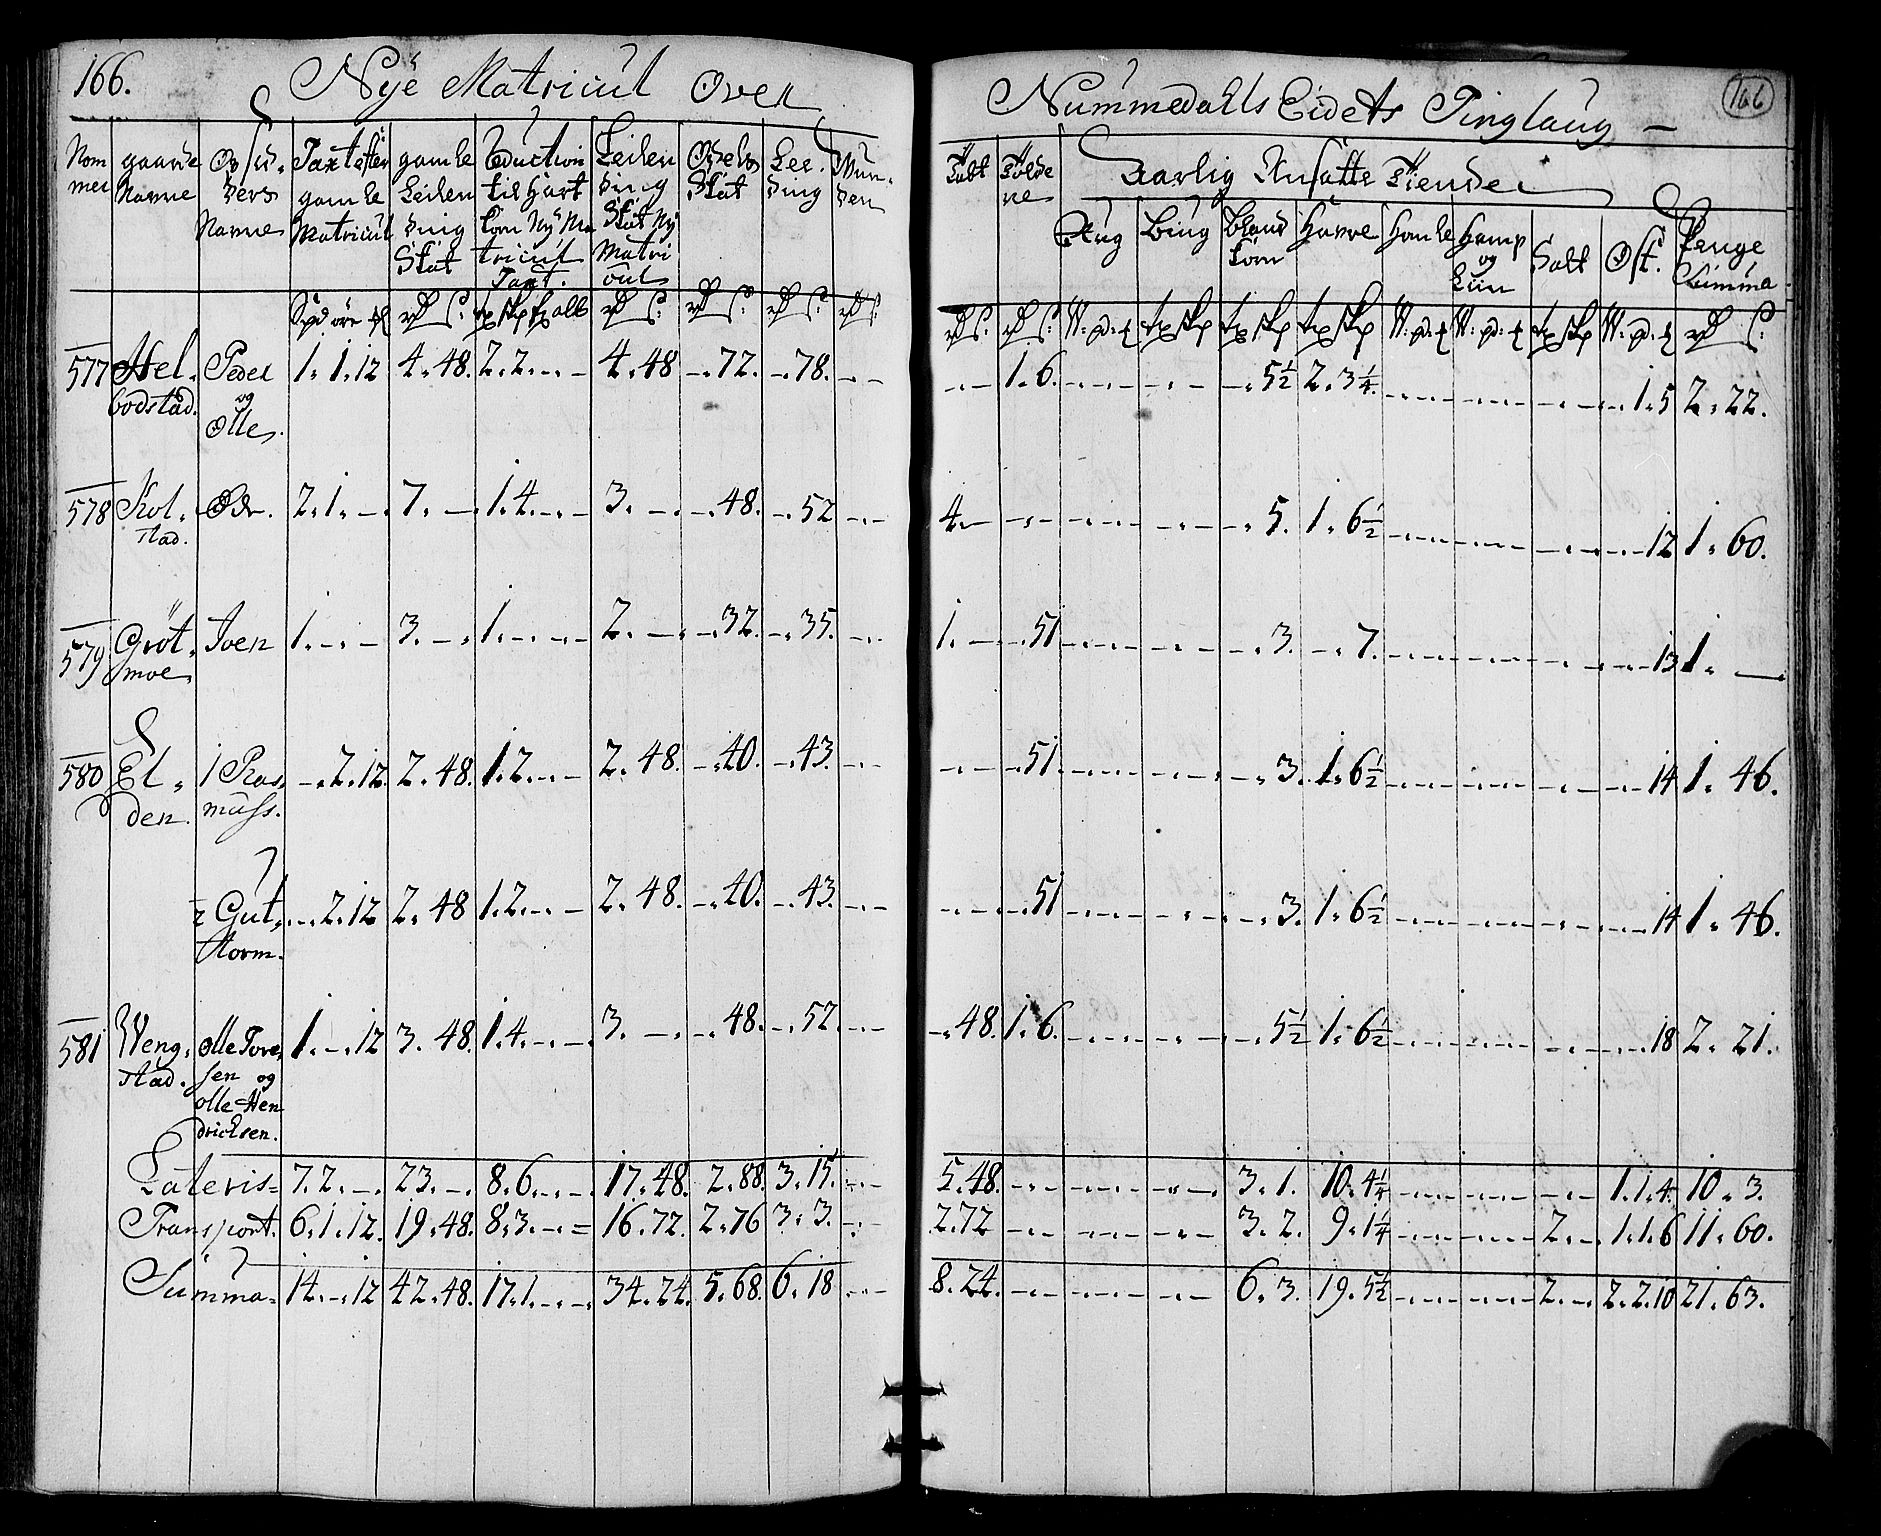 166. Nÿe Matricul Over Nummedahls Eidets Tinglaug 166
Nom mer | gaarde Navne | Opsid. ders Navne | Taxt efter gamle Matricul | gamle Leilen ding Skat | Reduction til Hart Korn Nÿ Ma tricul Taxt. | Leilen ding Skat Nÿ Matri cul | Odels Skat | Lei. ding | Wun. den | Tækt | Følde ne | Aarlig Ansatte Tiende
Rug | Biug | bland Korn | Havre | Homle | Hamp og Liin | Salt | Ost. | Penge Summa
577 Hel. Peder 1. 1. 12 4. 48. 2. 2. - - 4. 48 -. 72. -. 78. - - - - 1. 6. - - - - -. 5½ 2. 3¼ - - - - 1. 5 2. 22.
bodstad. og
Olle.
578 Kol. Odr. 2. 1. - 7. - 1. 4. - - 3. - -. 48. -. 52 - - 4. - - - - - - -. 5. 1. 6½ - - - - 12 1. 60.
stad.
579 Gröt. Iver 1. - - 3. - 1. - - - 2. - -. 32. -. 35. - - 1. - -. 51 - - - - -. 3. -. 7. - - - - 13 1. -
moe
580 El. 1 Ras. -. 2. 12. 2. 48. 1. 2. - - 2. 48. -. 40. -. 43. - - - - -. 51. - - - - -. 3. 1. 6½ - - - - 14 1. 46.
den. muss.
2 Gut. -. 2. 12 2. 48 1. 2. - - 2. 48. -. 40. -. 43. - - - - -. 51 - - - - -. 3. 1. 6½ - - - - 14 1. 46.
storm.
581 Weng. olle Tore 1. -. 12 3. 48. 1. 4. - - 3. - -. 48. -. 52. - - -. 48. 1. 6. - - - - -. 5½ 1. 6½ - - - - 18 2. 21.
stad. sen og
olle Hen
dricksen.
Lateris 7. 2. - 23. - 8. 6. - - 17. 48. 2. 88. 3. 15. - - 5. 48. - - - - - - 3. 1. 10. 4¼ - - - - - - 1. 1. 4. 10. 3.
Transport. 6. 1. 12. 19. 48. 8. 3. - = 16. 72. 2. 76 3. 3. - 2. 72 - - - - - - 3. 2. 9. 1¼ - - - - 2. - 1. 1. 6 11. 60.
Summa 14. -. 12 42. 48. 17. 1. - - 34. 24. 5. 68. 6. 18 - - 8. 24. - - - - - - 6. 3. 19. 5½ - - - - 2. - 2. 2. 10 21. 63.